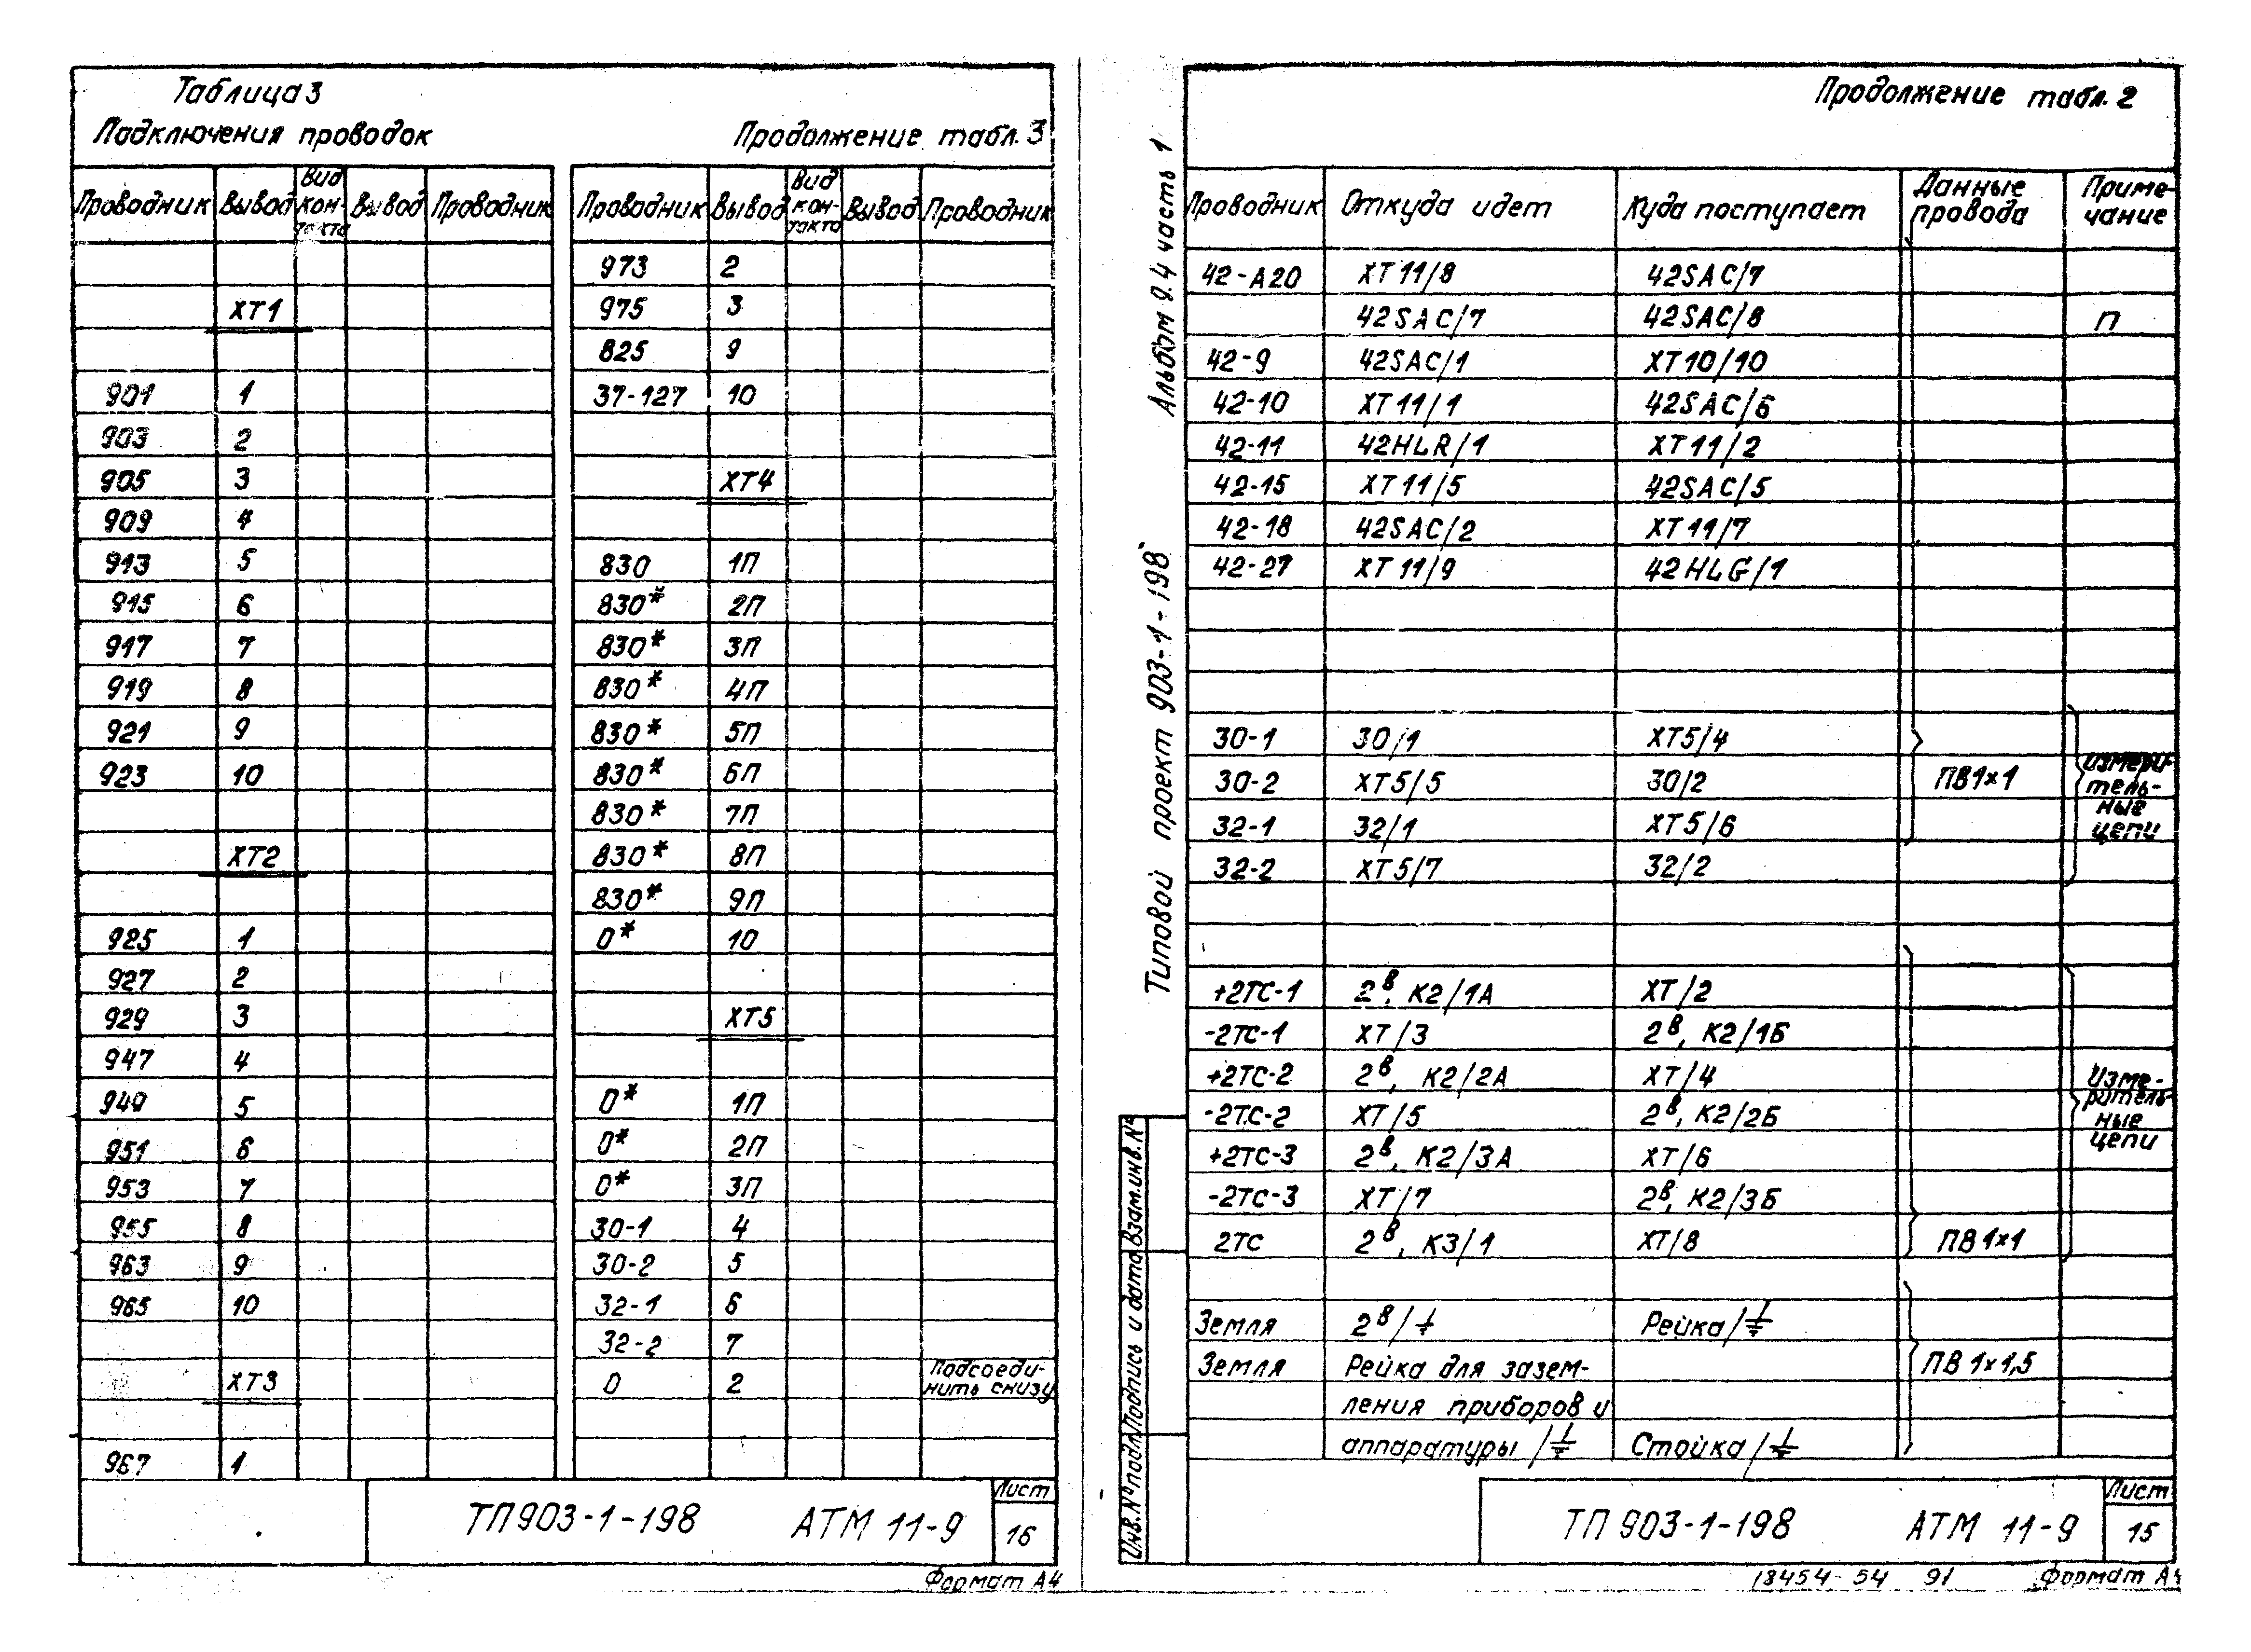 Таблица 3
Подключения проводок
Продолжение табл. 3
Проводник Вывод Вид кон-такта Вывод Проводник
ХТ1
901 1
903 2
905 3
909 4
913 5
915 6
917 7
919 8
921 9
923 10
ХТ2
925 1
927 2
929 3
947 4
949 5
951 6
953 7
955 8
963 9
965 10
ХТ3
967 1
Проводник Вывод Вид кон-такта Вывод Проводник
973 2
975 3
825 9
37-127 10
ХТ4
830 1П
830* 2П
830* 3П
830* 4П
830* 5П
830* 6П
830* 7П
830* 8П
830* 9П
0* 10
ХТ5
0* 1П
0* 2П
0* 3П
30-1 4
30-2 5
32-1 6
32-2 7
0 2 Подсоеди-нить снизу
ТП903-1-198 АТМ 11-9
Лист
16
Формат А4
Типовой проект 903-1-198 Альбом 9.4 часть 1
Инв.№ подл. Подпись и дата Взам.инв.№
Продолжение табл. 2
Проводник Откуда идет Куда поступает Данные провода Приме-чание
42-А20 ХТ11/8 42SAC/7
42SAC/7 42SAC/8 П
42-9 42SAC/1 ХТ10/10
42-10 ХТ11/1 42SAC/6
42-11 42HLR/1 ХТ11/2
42-15 ХТ11/5 42SAC/5
42-18 42SAC/2 ХТ11/7
42-27 ХТ11/9 42HLG/1
30-1 30/1 ХТ5/4
30-2 ХТ5/5 30/2 ПВ1×1 Измери-тель-ные цепи
32-1 32/1 ХТ5/6
32-2 ХТ5/7 32/2
+2ТС-1 2В, К2/1А ХТ/2
-2ТС-1 ХТ/3 2В, К2/1Б
+2ТС-2 2В, К2/2А ХТ/4 Изме-ритель-ные цепи
-2ТС-2 ХТ/5 2В, К2/2Б
+2ТС-3 2В, К2/3А ХТ/6
-2ТС-3 ХТ/7 2В, К2/3Б
2ТС 2В, К3/1 ХТ/8 ПВ1×1
Земля 2В/⏚ Рейка/⏚
Земля Рейка для зазем- ПВ 1×1,5
ления приборов и
аппаратуры/⏚ Стойка/⏚
ТП 903-1-198 АТМ 11-9
Лист
15
18454-54 91 Формат А4